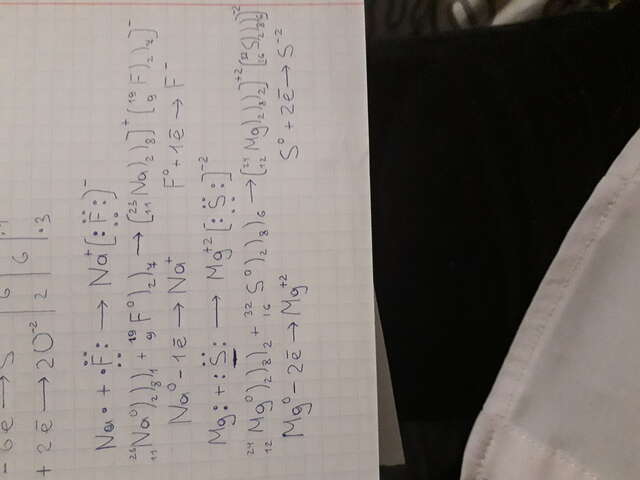 - 6ē → S | 6 | 6 |
+ 2ē → 2O⁻² | 2 | | ·3
Na· + ·F: → Na⁺[:F:]⁻
²³₁₁Na⁰)₂)₈)₁ + ¹⁹₉F⁰)₂)₇ → [²³₁₁Na)₂)₈]⁺ [¹⁹₉F)₂)₇]⁻
Na⁰ - 1ē → Na⁺ F⁰ + 1ē → F⁻
Mg: + :S: → Mg⁺²[:S:]⁻²
²⁴₁₂Mg⁰)₂)₈)₂ + ³²₁₆S⁰)₂)₈)₆ → [²⁴₁₂Mg)₂)₈)₂]⁺² [³²₁₆S)₂)₈)₆]⁻²
Mg⁰ - 2ē → Mg⁺² S⁰ + 2ē → S⁻²